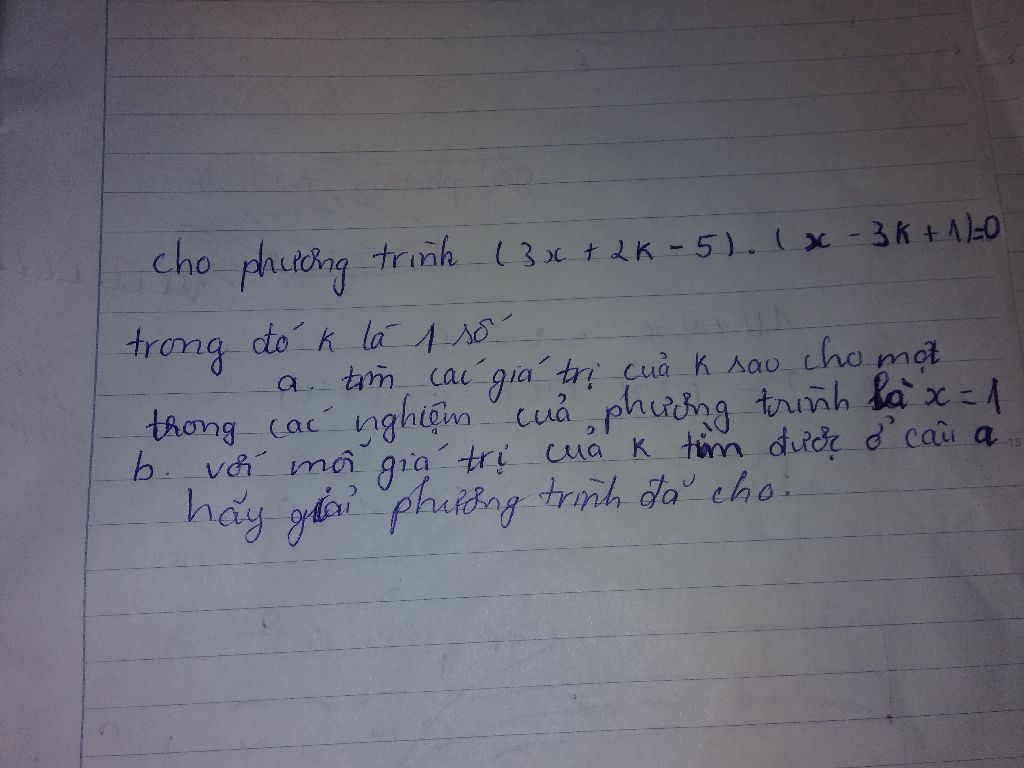 cho phương trình (3x + 2k - 5). (x - 3k + 1)=0
trong đó k là 1 số
a. tìm các giá trị của k sao cho một
trong các nghiệm của phương trình là x = 1
b. với mỗi giá trị của k tìm được ở câu a
hãy giải phương trình đã cho.